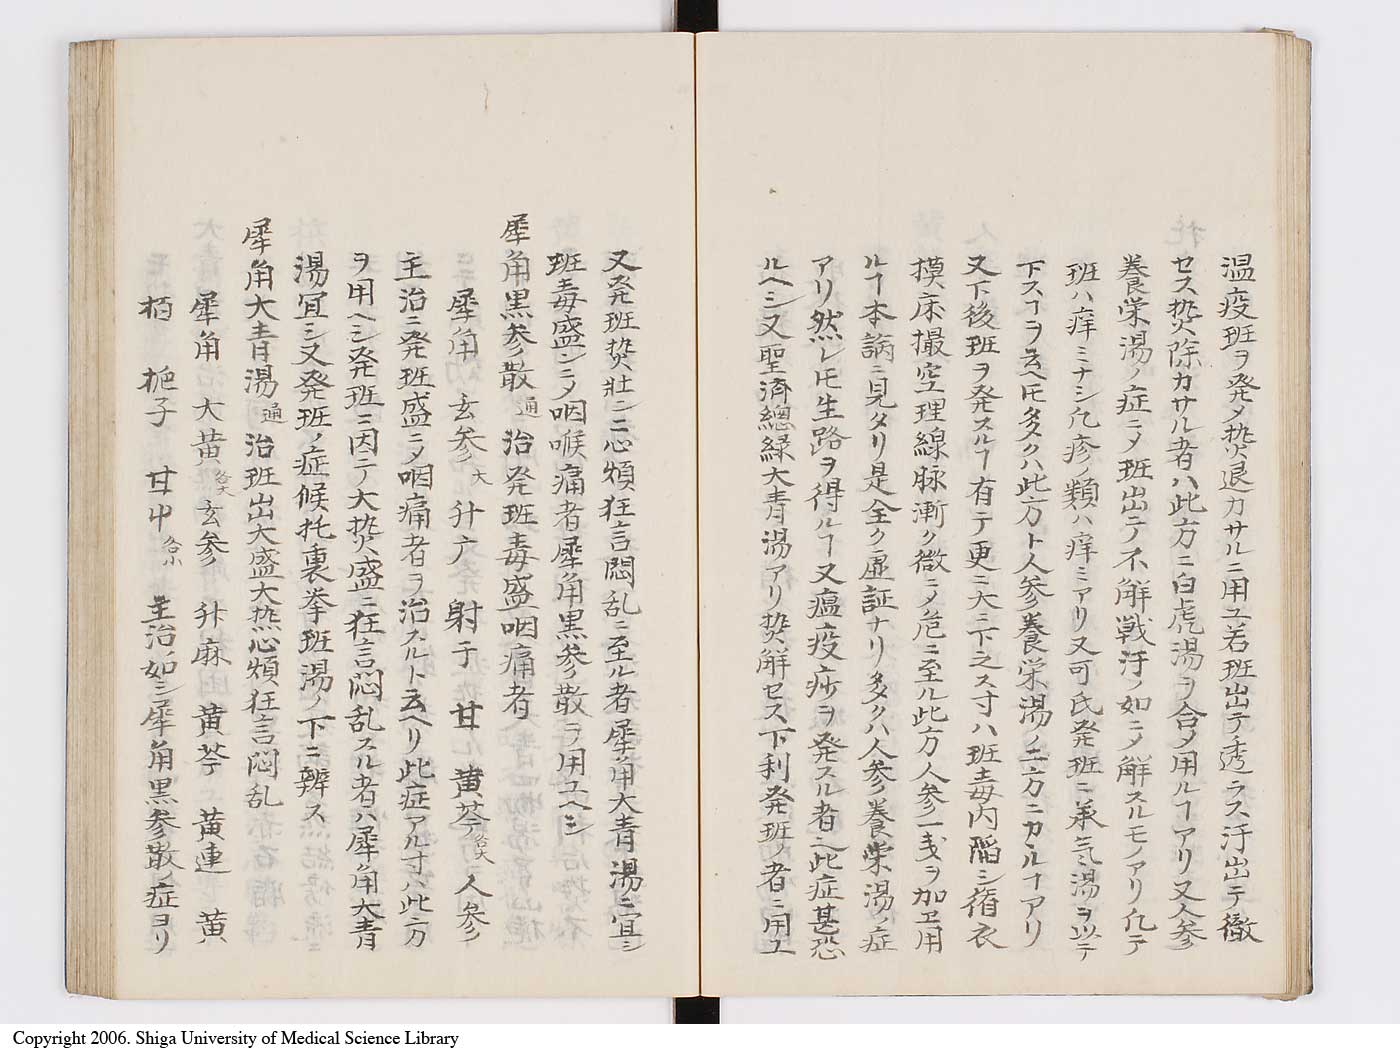 温疫班ヲ発〆㷊退カサルニ用ユ若班出テ透ラス汗出テ徹
セス㷊除カサル者ハ此方ニ白虎湯ヲ合〆用ルヿアリ又人参
養栄湯ノ症ニ〆班出テ不解戦汗ノ如ニ〆解スルモノアリ凡テ
班ハ痒ミナシ凡疹ノ類ハ痒ミアリ又可氏発班ニ承気湯ヲ以テ
下スヿヲ云𪜈多クハ此方ト人参養栄湯ノ二方ニカヽルヿアリ
又下後班ヲ発スルヿ有テ更ニ大ニ下之ス寸ハ班毒内陥シ循衣
摸床撮空理線脉漸ク微ニ〆危ニ至ル此方人参一戔ヲ加エ用
ルヿ本論ニ見タリ是全ク虚証ナリ多クハ人参養栄湯ノ症
アリ然レ𪜈生路ヲ得ルヿ又瘟疫痧ヲ発スル者之此症甚恐
ルヘシ又聖済總録大青湯アリ㷊解セス下利発班ノ者ニ用ユ
又発班㷊壮ンニ心煩狂言悶乱ニ至ル者犀角大青湯ニ宜シ
班毒盛ンニ〆咽喉痛者犀角黒参散ヲ用ユヘシ
犀角黒参ノ散 通 治発班毒盛咽痛者
犀角 玄参 大 升广 射干 甘 黄芩 各大 人参
主治ニ発班盛ニ〆咽痛者ヲ治スルト云ヘリ此症アル寸ハ此方
ヲ用ヘシ発班ニ因テ大㷊盛ニ狂言悶乱スル者ハ犀角大青
湯宜シ又発班ノ症候托裏挙班湯ノ下ニ辨ス
犀角大青湯 通 治班出大盛大热心煩狂言悶乱
犀角 大黄 各大 玄参 升麻 黄芩 黄連 黄
栢 梔子 甘屮 各小 主治如シ犀角黒参散ノ症ヨリ
Copyright 2006. Shiga University of Medical Science Library